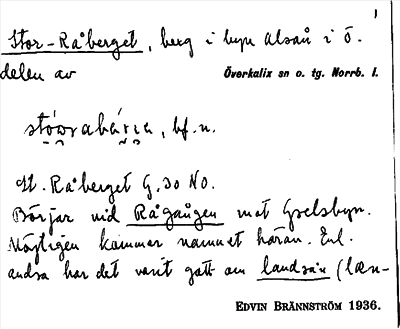 1
Stor-Råberget, berg i byn Alsån i ö.
delen av Överkalix sn o. tg. Norrb. l.
bf. n.
St. Råberget G. 30 NO.
Börjar vid Rågången mot Gyelsbyn.
Möjligen kommer namnet härav. Enl.
andra har det varit gott om landsän (læn-
EDVIN BRÄNNSTRÖM 1936.